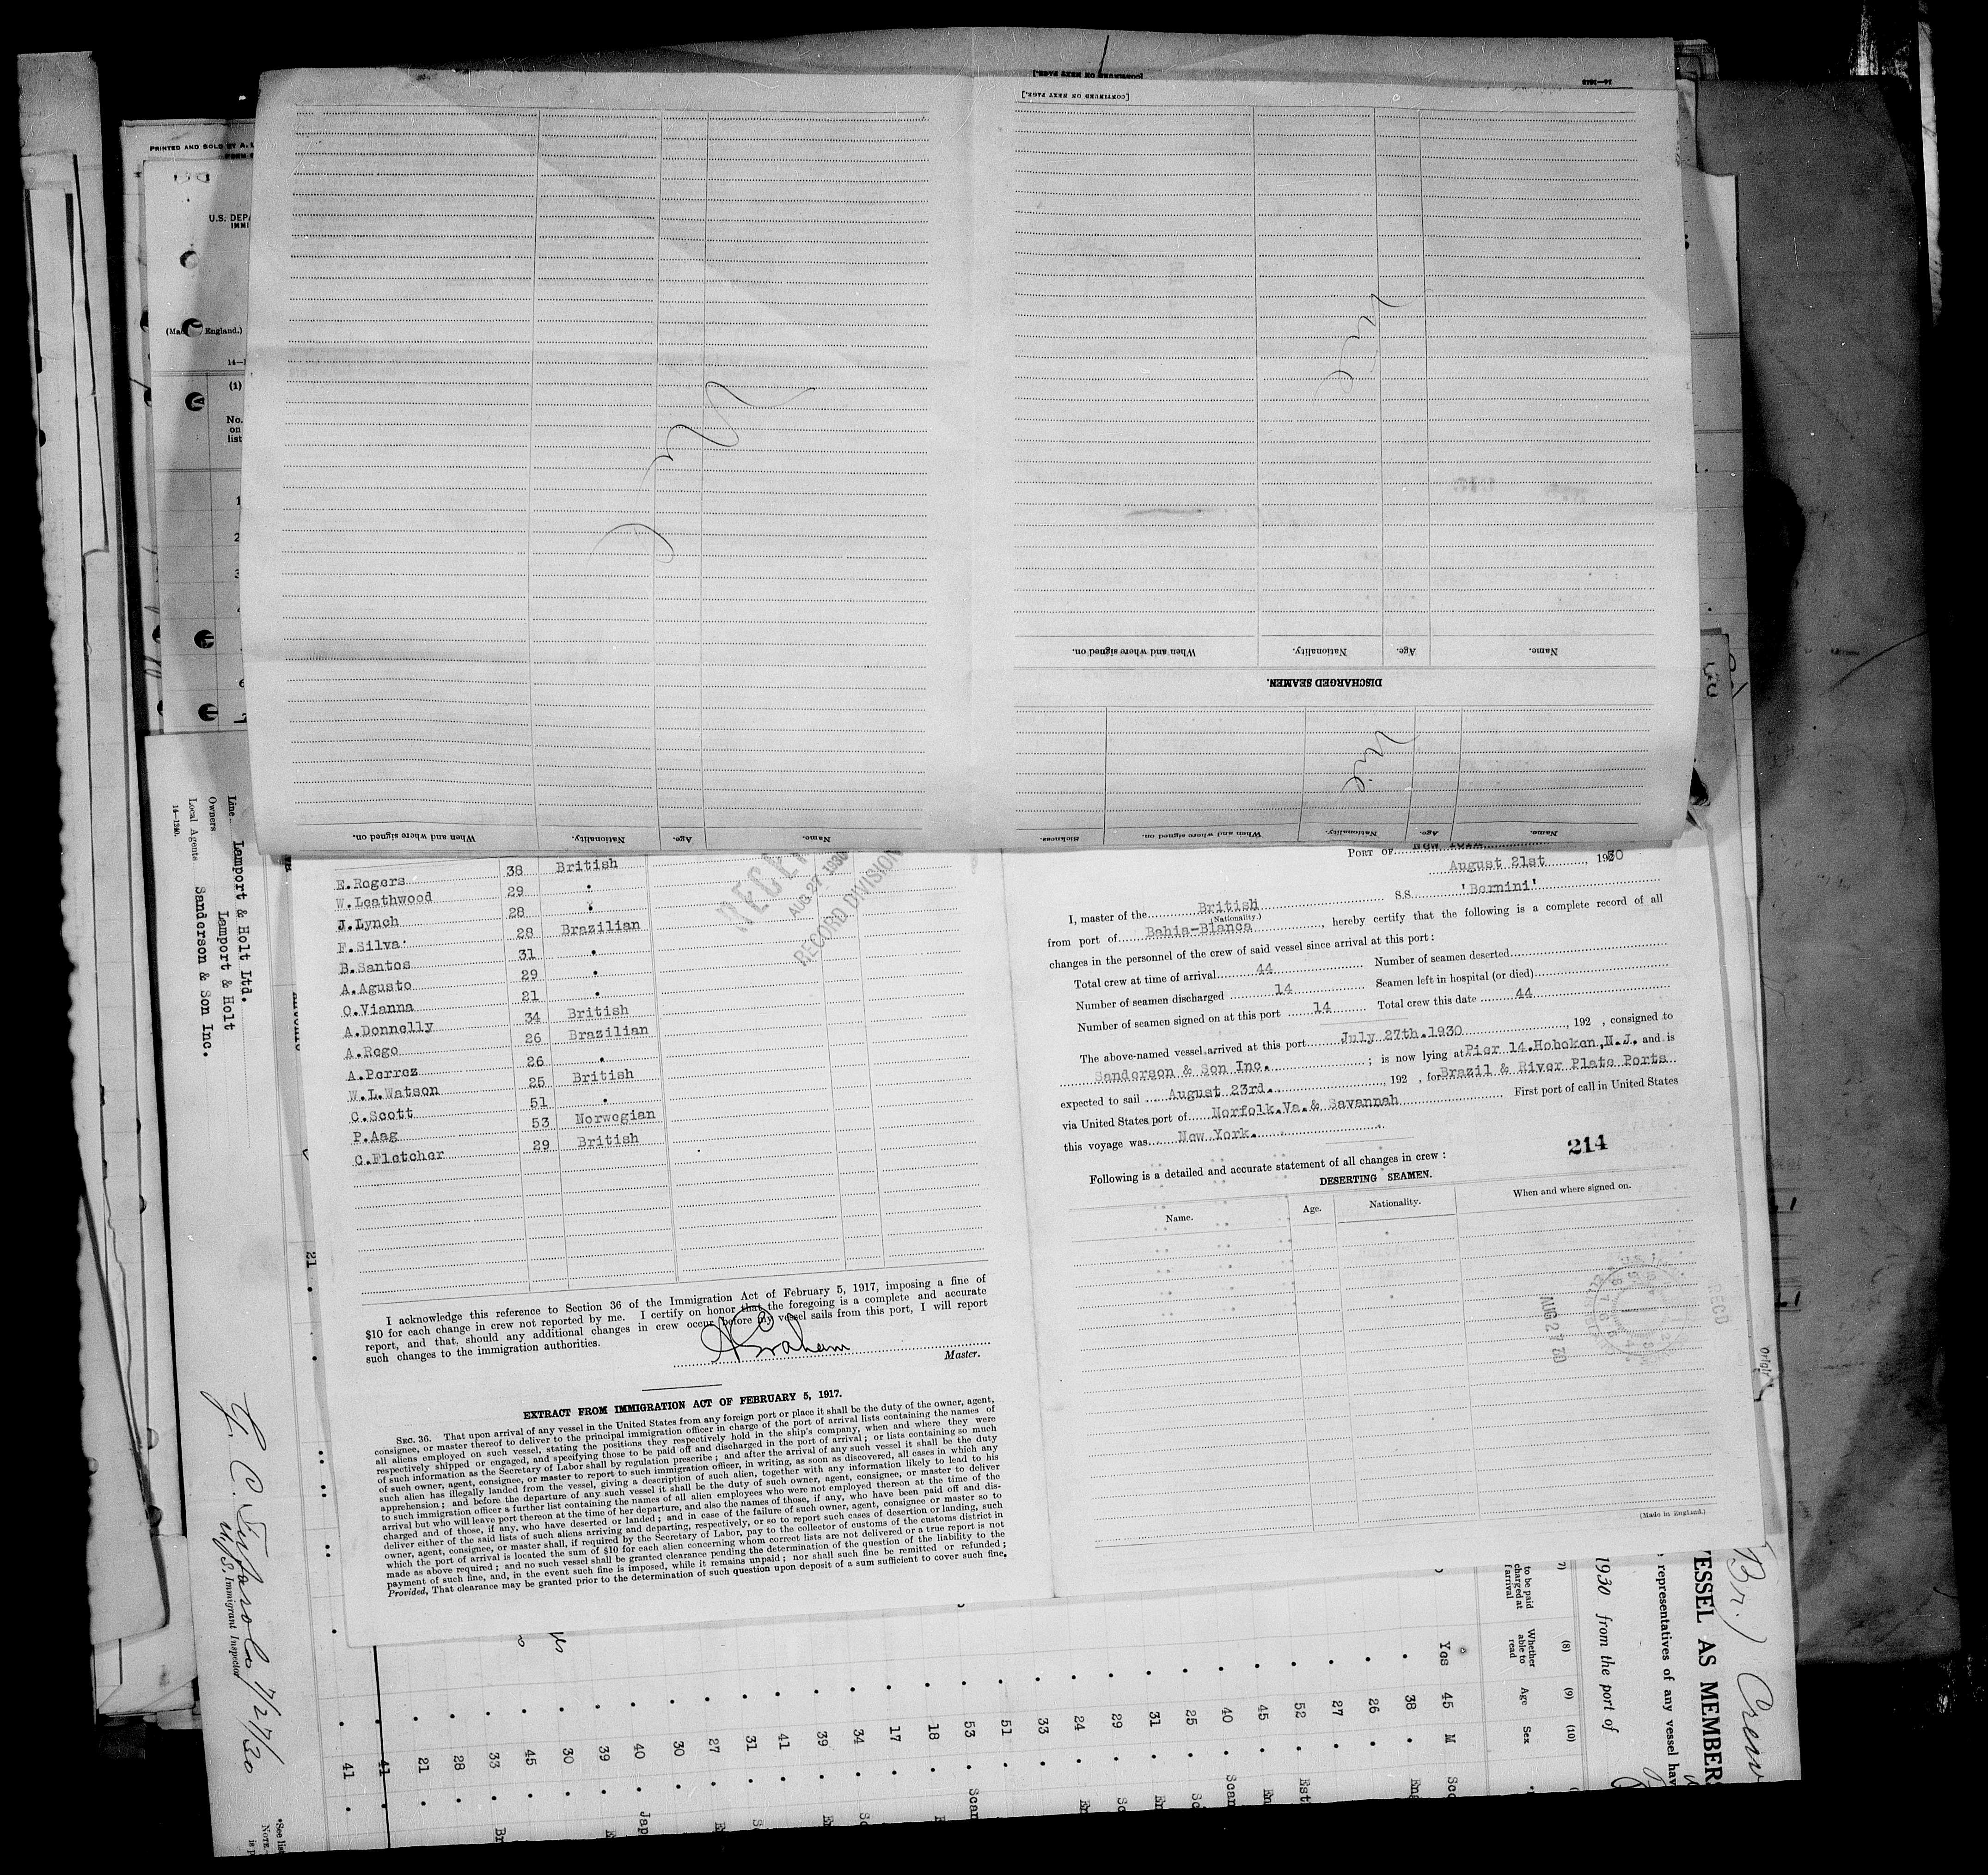 [CONTINUED ON NEXT PAGE.]
14—1240
[CONTINUED ON NEXT PAGE.]
PRINTED AND SOLD BY A.
U.S. DEPA
IMMI
(Ma England.)
(1)
No.
on
list
1
2
3
6
7
When and where signed on.
Nationality.
Age.
Name.
DISCHARGED SEAMEN.
Sickness.
When and where signed on.
Nationality.
Age.
Name.
When and where signed on.
Nationality.
Age.
Name.
Line Lamport & Holt Ltd.
Owners Lamport & Holt
Local Agents Sanderson & Son Inc.
14—1240.
E.Rogers 38 British
W.Leathwood 29 "
J.Lynch 28 "
F.Silva 28 Brazilian
B.Santos 31 "
A.Agusto 29 "
O.Vianna 21 "
A.Donnelly 34 British
A.Rego 26 Brazilian
A.Perrez 26 "
W.L.Watson 25 British
C.Scott 51 "
P.Aag 53 Norwegian
C.Fletcher 29 British
AUG 27 1930
RECORD DIVISION
I acknowledge this reference to Section 36 of the Immigration Act of February 5, 1917, imposing a fine of
$10 for each change in crew not reported by me. I certify on honor that the foregoing is a complete and accurate
report, and that, should any additional changes in crew occur before my vessel sails from this port, I will report
such changes to the immigration authorities.
A Graham
Master.
EXTRACT FROM IMMIGRATION ACT OF FEBRUARY 5, 1917.
SEC. 36. That upon arrival of any vessel in the United States from any foreign port or place it shall be the duty of the owner, agent,
consignee, or master thereof to deliver to the principal immigration officer in charge of the port of arrival lists containing the names of
all aliens employed on such vessel, stating the positions they respectively hold in the ship's company, when and where they were
respectively shipped or engaged, and specifying those to be paid off and discharged in the port of arrival; or lists containing so much
of such information as the Secretary of Labor shall by regulation prescribe; and after the arrival of any such vessel it shall be the duty
of such owner, agent, consignee, or master to report to such immigration officer, in writing, as soon as discovered, all cases in which any
such alien has illegally landed from the vessel, giving a description of such alien, together with any information likely to lead to his
apprehension; and before the departure of any such vessel it shall be the duty of such owner, agent, consignee, or master to deliver
to such immigration officer a further list containing the names of all alien employees who were not employed thereon at the time of the
arrival but who will leave port thereon at the time of her departure, and also the names of those, if any, who have been paid off and dis-
charged and of those, if any, who have deserted or landed; and in case of the failure of such owner, agent, consignee or master so to
deliver either of the said lists of such aliens arriving and departing, respectively, or so to report such cases of desertion or landing, such
owner, agent, consignee, or master shall, if required by the Secretary of Labor, pay to the collector of customs of the customs district in
which the port of arrival is located the sum of $10 for each alien concerning whom correct lists are not delivered or a true report is not
made as above required; and no such vessel shall be granted clearance pending the determination of the question of the liability to the
payment of such fine, and, in the event such fine is imposed, while it remains unpaid; nor shall such fine be remitted or refunded;
Provided, That clearance may be granted prior to the determination of such question upon deposit of a sum sufficient to cover such fine.
PORT OF
August 21st, 1930
I, master of the British S.S. 'Bernini'
(Nationality.)
from port of Bahia-Blanca, hereby certify that the following is a complete record of all
changes in the personnel of the crew of said vessel since arrival at this port:
Total crew at time of arrival 44 Number of seamen deserted
Number of seamen discharged 14 Seamen left in hospital (or died)
Number of seamen signed on at this port 14 Total crew this date 44
The above-named vessel arrived at this port July 27th.1930, 192 , consigned to
Sanderson & Son Inc.; is now lying at Pier 14.Hoboken,N.J. and is
expected to sail August 23rd., 192 , for Brazil & River Plate Ports
via United States port of Norfolk.Va.& Savannah First port of call in United States
this voyage was New York.
214
Following is a detailed and accurate statement of all changes in crew:
DESERTING SEAMEN.
Name. Age. Nationality. When and where signed on.
AUG 27 30
REC'D
(Made in England.)
U.S. Immigrant Inspector
7/27/30
21
41 41 21 28 33 45 30 39 40 30 27 31 41 39 34 17 18 53 51 33 24 29 31 25 40 45 52 27 26 38 45
Yes
M
to be paid
charged at
arrival
(8)
Whether
able to
read
(9)
Age
(10)
Sex
1930 from the port of
representatives of any vessel hav
ESSEL AS MEMBERS
(Br.) Crew